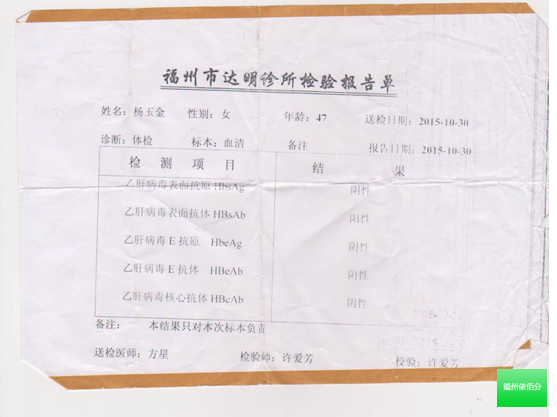 福州市达明诊所检验报告单
姓名：杨玉金 性别：女 年龄：47 送检日期：2015-10-30
诊断：体检 标本：血清 备注 报告日期：2015-10-30
检测项目 结果
乙肝病毒表面抗原 HbsAg 阴性
乙肝病毒表面抗体 HBsAb 阴性
乙肝病毒 E 抗原 HbeAg 阴性
乙肝病毒 E 抗体 HBeAb 阴性
乙肝病毒核心抗体 HBcAb 阴性
备注： 本结果只对本次标本负责
送检医师：方星 检验师：许爱芳 校验：许爱芳
福州依佰分